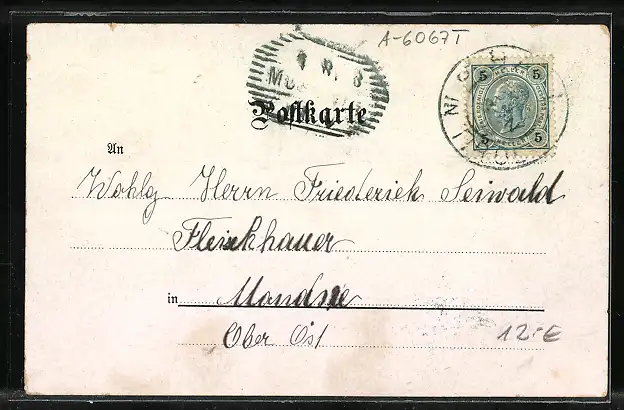 A-6067T
Postkarte
5 5
5 5
An
Wohlg Herrn Friederich Seiwald
Fleischhauer
in Mondsee
Ober Öst
12.-E